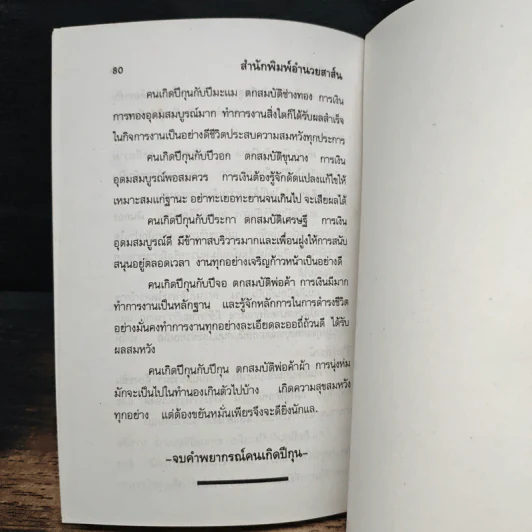 80 สำนักพิมพ์อำนวยสาส์น
คนเกิดปีกุนกับปีมะแม ตกสมบัติช่างทอง การเงิน
การทองอุดมสมบูรณ์มาก ทำการงานสิ่งใดก็ได้รับผลสำเร็จ
ในกิจการงานเป็นอย่างดีชีวิตประสบความสมหวังทุกประการ
คนเกิดปีกุนกับปีวอก ตกสมบัติขุนนาง การเงิน
อุดมสมบูรณ์พอสมควร การเงินต้องรู้จักดัดแปลงแก้ไขให้
เหมาะสมแก่ฐานะ อย่าทะเยอทะยานจนเกินไป จะเสียผลได้
คนเกิดปีกุนกับปีระกา ตกสมบัติเศรษฐี การเงิน
อุดมสมบูรณ์ดี มีข้าทาสบริวารมากและเพื่อนฝูงให้การสนับ
สนุนอยู่ตลอดเวลา งานทุกอย่างเจริญก้าวหน้าเป็นอย่างดี
คนเกิดปีกุนกับปีจอ ตกสมบัติพ่อค้า การเงินมีมาก
ทำการงานเป็นหลักฐาน และรู้จักหลักการในการดำรงชีวิต
อย่างมั่นคงทำการงานทุกอย่างละเอียดละออถี่ถ้วนดี ได้รับ
ผลสมหวัง
คนเกิดปีกุนกับปีกุน ตกสมบัติพ่อค้าผ้า การนุ่งห่ม
มักจะเป็นไปในทำนองเกินตัวไปบ้าง เกิดความสุขสมหวัง
ทุกอย่าง แต่ต้องขยันหมั่นเพียรจึงจะดียิ่งนักแล.
-จบคำพยากรณ์คนเกิดปีกุน-